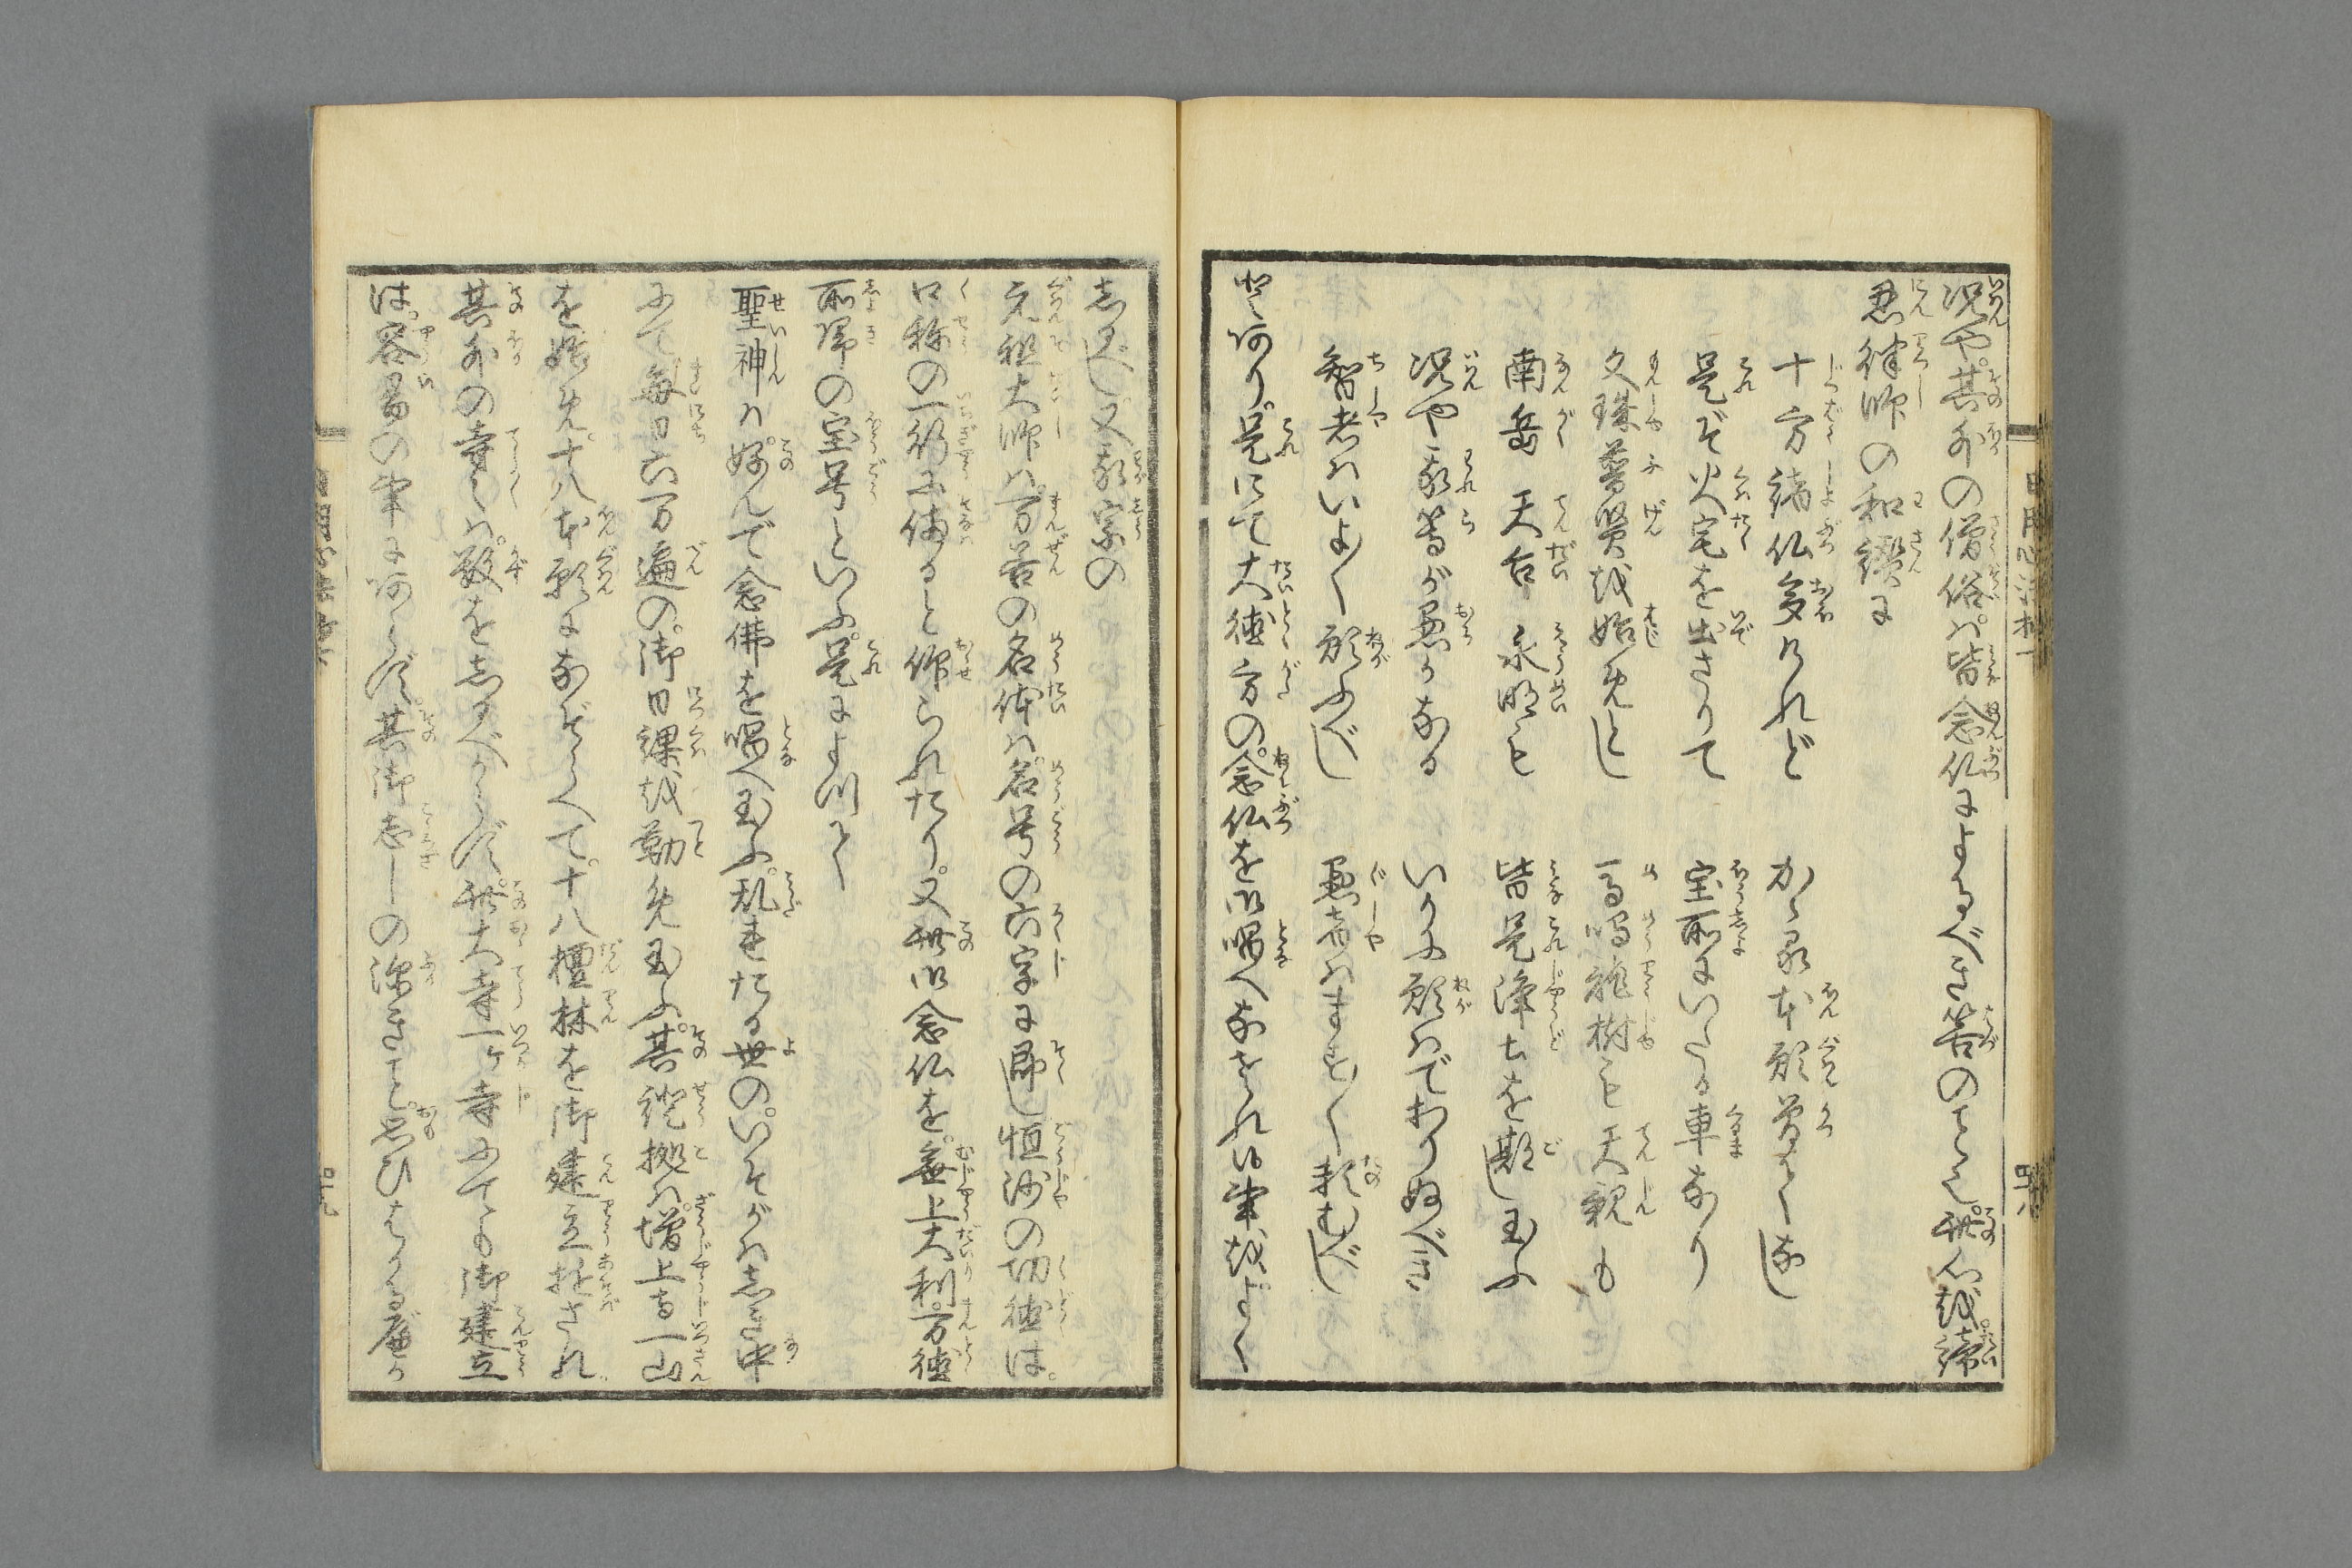 況や。其外の僧俗ハ。皆念仏によるべき筈のこと也。此心越。諦
忍律師の和讃に
十方諸仏多けれど　かゝる本願曽てなし
是ぞ火宅を出さりて　宝所にいたる車なり
文珠普賢越始めとし　馬鳴龍樹も天親も
南岳天台永明も　皆是浄土を期し玉ふ
況や我等が愚かなる　いかに願ハでおりぬべき
智者ハいよ〳〵願ふべし　愚者ハます〳〵頼むべし
とあり。是にて大徳方の。念仏を御唱へなされし事越。よく
志るべし。又我宗の
元祖大師ハ。万善の名体ハ。名号の六字に即し恒沙の功徳は。
口称の一行に備ると仰られたり。又此御念仏を。無上大利。万徳
所帰の宝号といふ。是によつて
聖神ハ。好んで念佛を唱へ玉ふ。乱まれたる世の。いそがハしき中
にて毎日六万遍の。御日課越勤め玉ふ。其證拠ハ。増上寺一山
を始め。十八本願になぞらへて。十八檀林を御建立遊され
其外の寺〳〵ハ。数を志るべからず。此大寺一ヶ寺にても御建立
は。容易の事にあらず。其御志しの深きこと。思ひはかるべか
四十八
四十九